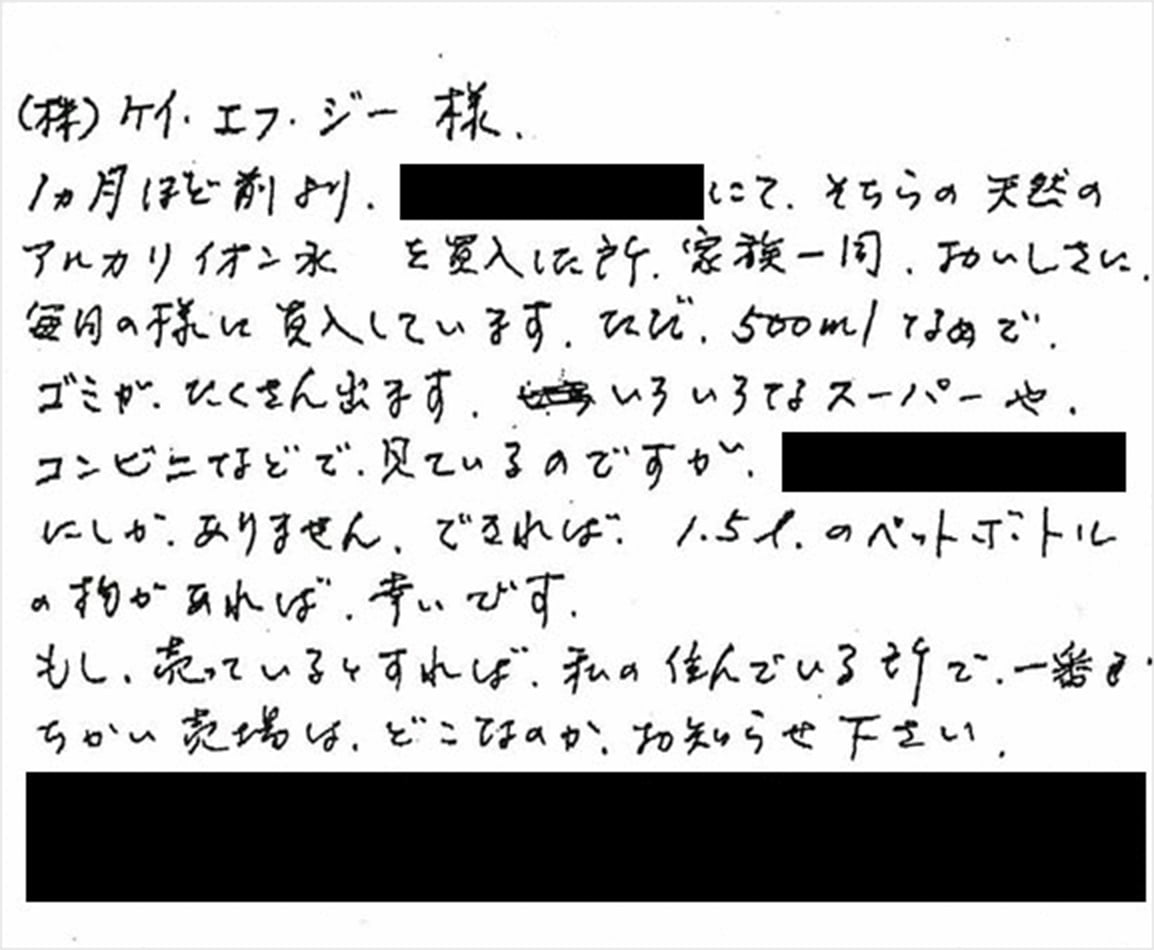 (株)ケイ・エフ・ジー 様.
1ヵ月ほど前より.
にて.そちらの天然の
アルカリイオン水 を買入した所.家族一同.おいしさに.
毎日の様に買入しています.ただ.500mlなので.
ゴミが.たくさん出ます.いろいろなスーパーや.
コンビニなどで.見ているのですが.
にしか.ありません.できれば.1.5l.のペットボトル
の物があれば.幸いです.
もし.売っているとすれば.私の住んでいる所で.一番
ちかい売場は.どこなのか.お知らせ下さい.